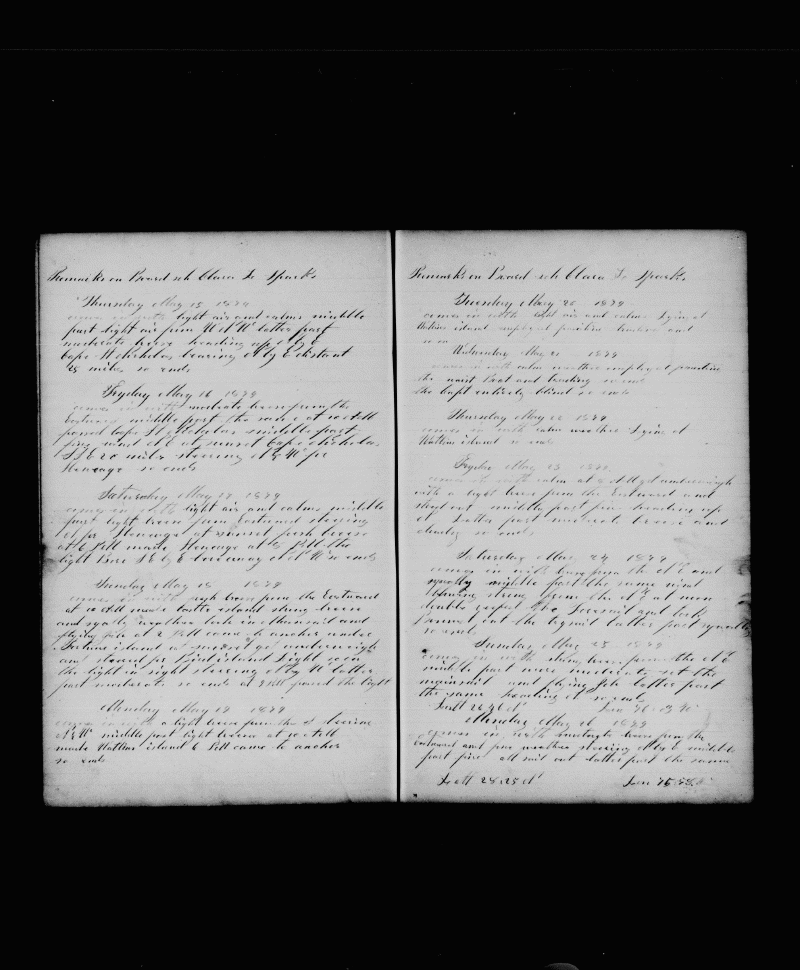 Remarks on Board sch Clara L Sparks
Thursday May 15 1879
comes in with light air and calms middle
part light air from N N W latter part
moderate breeze heading up
Cape Nicholas bearing N by E distant
25 miles so ends
Fryday May 16 1879
comes in with moderate breeze from the
Eastward middle part the same at 10 AM
passed cape St Nicholas middle part
fine wind at sunset cape nicholas
S S E 20 miles steering N W for
Heneaga so ends
Saturday May 17 1879
comes in with light air and calms middle
part light breeze from Eastward steering
for Heneaga at sunset fresh breeze
at 6 PM made Heneaga at PM the
light bore S E by E so ends
Sunday May 18 1879
comes in with fresh breeze from the Eastward
at 10 AM made castle island strong breeze
and squaly weather took in mainsail and
flying jib at 2 PM came to anchor under
Fortune island at got underweigh
and steared for Bird island Light
the light in sight steering N by W latter
part moderate so ends at 9 PM passed the light
Monday May 19 1879
comes in with a light breeze from the S steering
N W middle part light breeze at 10 AM
made Watlins island 6 PM came to anchor
so ends
Remarks on Board sch Clara L Sparks
Tuesday May 20 1879
comes in with light air and calms Lying at
Watlins island employed painting and
so on
Wednesday May 21 1879
comes in with calm weather employed painting
the waist Boat and so ends
the Capt entirely blind so ends
Thursday May 22 1879
comes in with calm weather Lying at
Watlins island so ends
Fryday May 23 1879
comes in with calm at got underweigh
with a light breeze from the Eastward and
stood out middle part fine heading up
N Latter part moderate breeze and
cloudy so ends
Saturday May 24 1879
comes in with breeze from the N E and
squally middle part the same wind
blowing strong from the N E at noon
double reefed the foresail and took
Bonnet out the latter part squally
so ends
Sunday May 25 1879
comes in with strong breeze from the N E
middle part more moderate set the
mainsail and flying Jib latter part
the same heading N so ends
Latt 26 21 N Lon
Monday May 26 1879
comes in with moderate breeze from the
Eastward and fine weather steering N by E middle
part fine all sail out latter part the same
Latt 28.25 N Lon 75